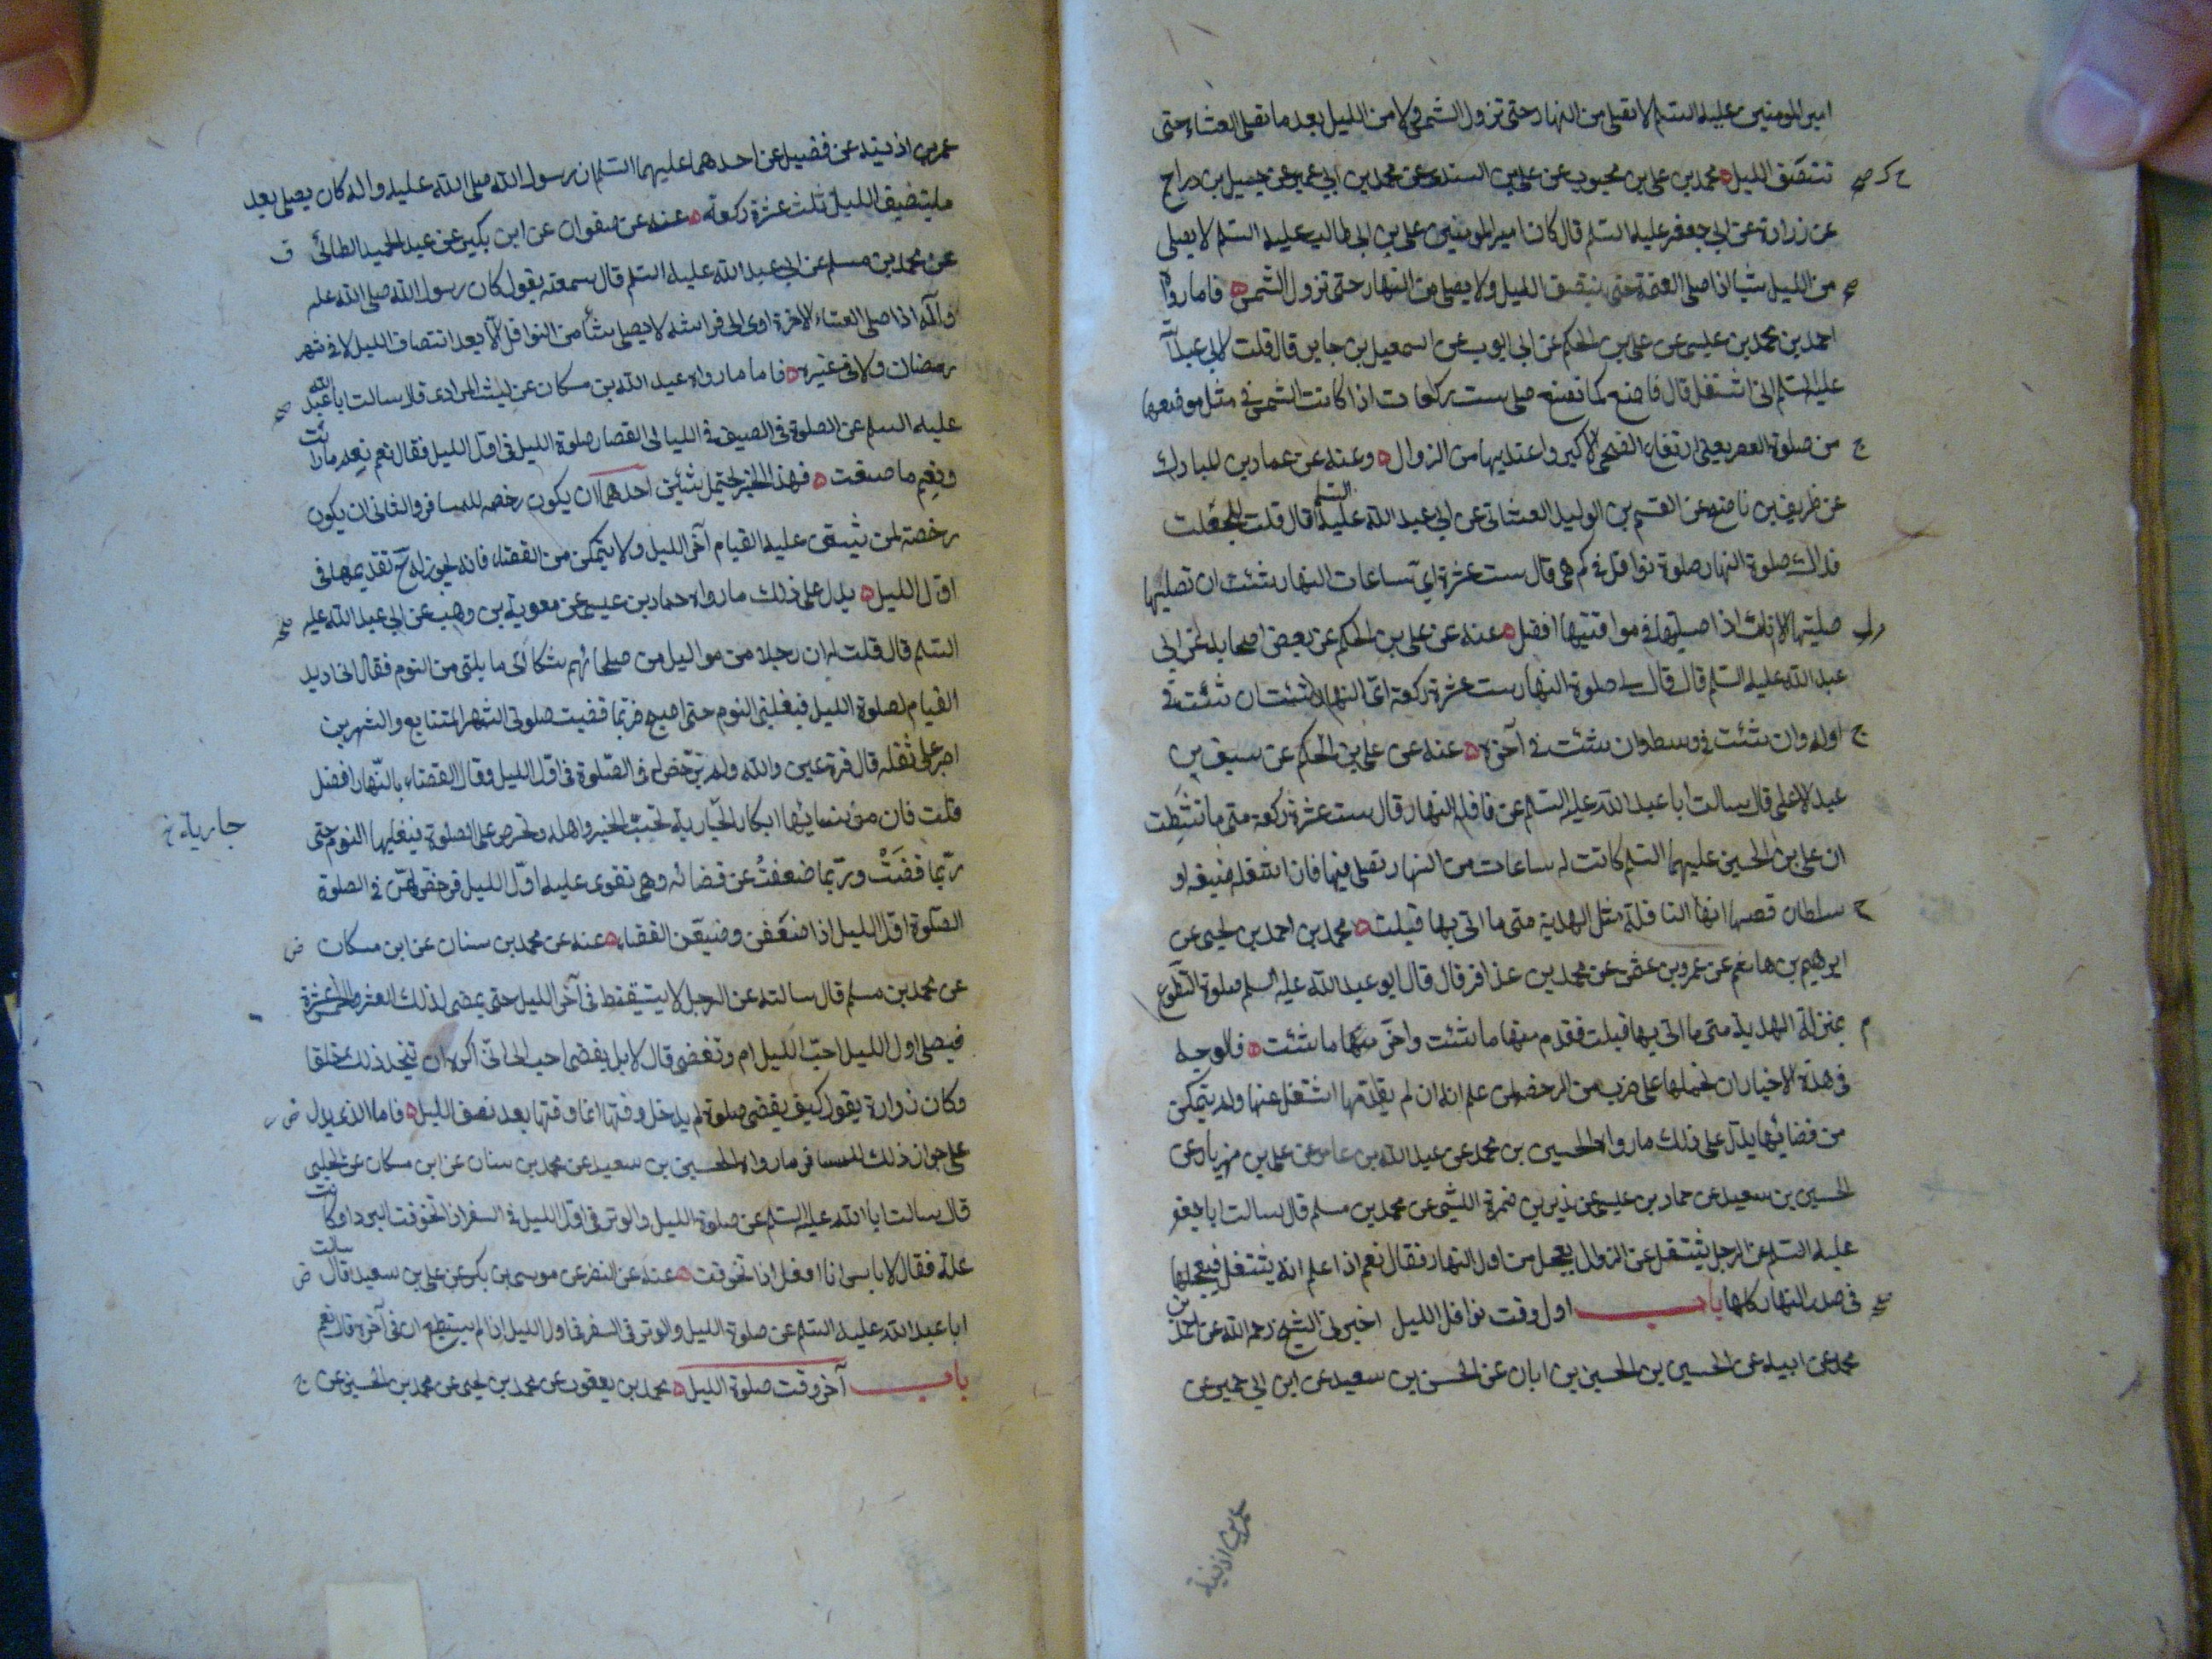 امير المومنين عليه السلم لا تصلى من النهار حتى تزول الشمس ولا من الليل بعد ما تصلى العشاء حتى
ينتصف الليل ه محمد بن على بن محبوب عن على بن السندى عن محمد بن ابى عمير عن جميل بن دراج
عن زرارة عن ابى جعفر عليه السلم قال كان امير المومنين على بن ابى طالب عليه السلم لا يصلى
من الليل شيا اذا صلى العتمة حتى ينتصف الليل ولا يصلى من النهار حتى تزول الشمس ه فاما رواه
احمد بن محمد بن عيسى عن على بن الحكم عن ابى ايوب عن اسمعيل بن جابر قال قلت لابى عبد الله
عليه السلم انى اشتغل قال فاصنع كما نصنع صل ست ركعات اذا كانت الشمس فى مثل موضعها
من صلوة العصر يعنى ارتفاع الضحى الاكبر واعتد بها من الزوال ه وعنه عن عمار بن المبارك
عن ظريف بن ناصح عن القسم بن الوليد الغسانى عن ابى عبد الله عليه السلم قال قلت له جعلت
فداك صلوة النهار صلوة نوافل فى كم هى قال ست عشرة اى ساعات النهار شئت ان تصليها
صليتها الا انك اذا صليتها فى مواقيتها افضل ه عنه عن على بن الحكم عن بعض اصحابه عن ابى
عبد الله عليه السلم قال قال لى صلوة النهار ست عشرة ركعة اى النهار شئت ان شئت فى
اوله وان شئت فى وسطه وان شئت فى آخره ه عنه عن على بن الحكم عن سيف بن
عبد الاعلى قال سالت ابا عبد الله عليه السلم عن نافلة النهار قال ست عشرة ركعة متى ما نشطت
ان على بن الحسين عليهما السلم كانت له ساعات من النهار يصلى فيها فاذا شغله ضيعة او
سلطان قضاها انما النافلة مثل الهدية متى ما اتى بها قبلت ه محمد بن احمد بن يحيى عن
ابرهيم بن هاشم عن عمرو بن عثمن عن محمد بن عذافر قال قال ابو عبد الله عليه السلم صلوة التطوع
بمنزلة الهدية متى ما اتى بها قبلت فقدم منها ما شئت واخر منها ما شئت ه فالوجه
فى هذه الاخبار ان نحملها على ضرب من الرخصة لمن علم انه ان لم يقدمها اشتغل عنها ولم يتمكن
من قضائها يدل على ذلك ما رواه الحسين بن محمد عن عبد الله بن عامر عن على بن مهزيار عن
الحسين بن سعيد عن حماد بن عيسى عن يزيد بن ضمرة الليثى عن محمد بن مسلم قال سالت ابا جعفر
عليه السلم عن الرجل يشتغل عن الزوال يعجل من اول النهار فقال نعم اذا علم انه يشتغل فيعجلها
فى صدر النهار كلها باب اول وقت نوافل الليل اخبرنى الشيخ رحمه الله عن احمد بن
محمد عن ابيه عن الحسين بن الحسن بن ابان عن الحسين بن سعيد عن ابن ابى عمير عن
عمر بن اذنية
عمر بن اذينه عن فضيل عن احدهما عليهما السلم ان رسول الله صلى الله عليه واله كان يصلى بعد
ما ينتصف الليل ثلث عشرة ركعة ه عنه عن صفوان عن ابن بكير عن عبد الحميد الطائى
عن محمد بن مسلم عن ابى عبد الله عليه السلم قال سمعته يقول كان رسول الله صلى الله عليه
وآله اذا صلى العشاء الاخرة اوى الى فراشه لا يصلى شئا من النوافل الا بعد انتصاف الليل لا فى شهر
رمضان ولا فى غيره ه فاما ما رواه عبد الله بن مسكان عن ليث المرادى قال سالت ابا عبد الله
عليه السلم عن الصلوة فى الصيف فى الليالى القصار صلوة الليل فى اول الليل فقال نعم نعم ما رايت
ونعم ما صنعت ه فهذا الخبر يحتمل شيئين احدهما ان يكون رخصه للمسافر والثانى ان يكون
رخصة لمن يشق عليه القيام آخر الليل ولا يتمكن من القضاء فانه يجوز له ح تقديمها فى
اول الليل ه يدل على ذلك ما رواه حماد بن عيسى عن معوية بن وهب عن ابى عبد الله عليه
السلم قال قلت له ان رجلا من مواليك من صلحائهم شكا الى ما يلقى من النوم فقال انى اريد
القيام لصلوة الليل فيغلبنى النوم حتى اصبح فربما قضيت صلوتى الشهر المتتابع والشهرين
اصبر على ثقله قال قرة عين والله ولم يرخص له فى الصلوة فى اول الليل وقال القضاء بالنهار افضل
قلت فان من نسائنا ابكار الجارية تحب الخير واهله وتحرص على الصلوة فيغلبها النوم حتى
جارية خ
ربما قضت وربما ضعفت عن قضائه وهى تقوى عليه اول الليل فرخص لهن فى الصلوة
الصلوة اول الليل اذا ضعفن وضيعن القضاء ه عنه عن محمد بن سنان عن ابن مسكان
عن محمد بن مسلم قال سالته عن الرجل لا يستيقظ فى آخر الليل حتى يمضى لذلك العشر والخمس عشرة
فيصلى اول الليل احب اليك ام يقضى قال لا بل يقضى احب الى انى اكره ان يتخذ ذلك خلقا
وكان زرارة يقول كيف يقضى صلوة لم يدخل وقتها انما وقتها بعد نصف الليل ه فاما الذى يدل
على جواز ذلك للمسافر ما رواه الحسين بن سعيد عن محمد بن سنان عن ابن مسكان عن الحلبى
قال سالت ابا الله عليه السلم عن صلوة الليل والوتر فى اول الليل فى السفر اذا تخوفت البرد او كانت
علة فقال لا باس انا افعل اذا تخوفت ه عنه عن النضر عن موسى بن بكر عن على بن سعيد قال سالت
ابا عبد الله عليه السلم عن صلوة الليل والوتر فى السفر فى اول الليل اذا لم يستطع ان فى آخره قال نعم
باب آخر وقت صلوة الليل ه محمد بن يعقوب عن محمد بن يحيى عن محمد بن الحسين عن